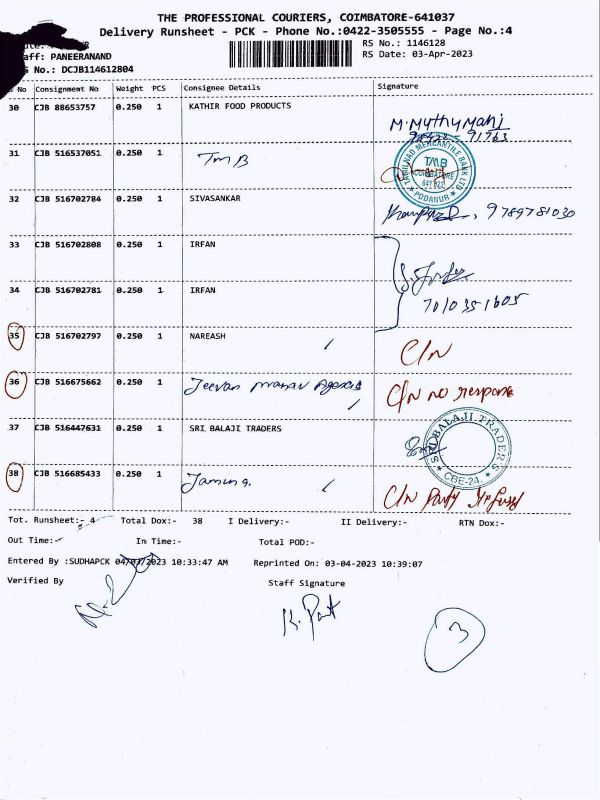 THE PROFESSIONAL COURIERS, COIMBATORE-641037
Delivery Runsheet - PCK - Phone No.:0422-3505555 - Page No.:4
RS No.: 1146128
aff: PANEERANAND RS Date: 03-Apr-2023
s No.: DCJB114612804
s No Consignment No Weight PCS Consignee Details Signature
30 CJB 88653757 0.250 1 KATHIR FOOD PRODUCTS
M.Muthumani
31 CJB 516537051 0.250 1 TMB
TAMILNAD MERCANTILE BANK LTD
TMB
COIMBATORE
PODANUR
32 CJB 516702784 0.250 1 SIVASANKAR
9789781030
33 CJB 516702808 0.250 1 IRFAN
34 CJB 516702781 0.250 1 IRFAN
7010351605
35 CJB 516702797 0.250 1 NAREASH C/N
36 CJB 516675662 0.250 1 Jeevan pranav Agencis C/N no response
37 CJB 516447631 0.250 1 SRI BALAJI TRADERS
SRI BALAJI TRADERS
CBE-24.
38 CJB 516685433 0.250 1 Jamuna. C/N Party
Tot. Runsheet:- 4 Total Dox:- 38 I Delivery:- II Delivery:- RTN Dox:-
Out Time:- In Time:- Total POD:-
Entered By :SUDHAPCK 04/03/2023 10:33:47 AM Reprinted On: 03-04-2023 10:39:07
Verified By Staff Signature
3